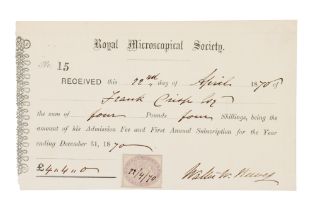 Royal Microscopical Society.
No. 15
RECEIVED this 22nd day of April 1870
Frank Crisp Esq
the sum of four Pounds four Shillings, being the
amount of his Admission Fee and First Annual Subscription for the Year
ending December 31, 1870
£4.4.0
22/4/70
Walter W. Reeves